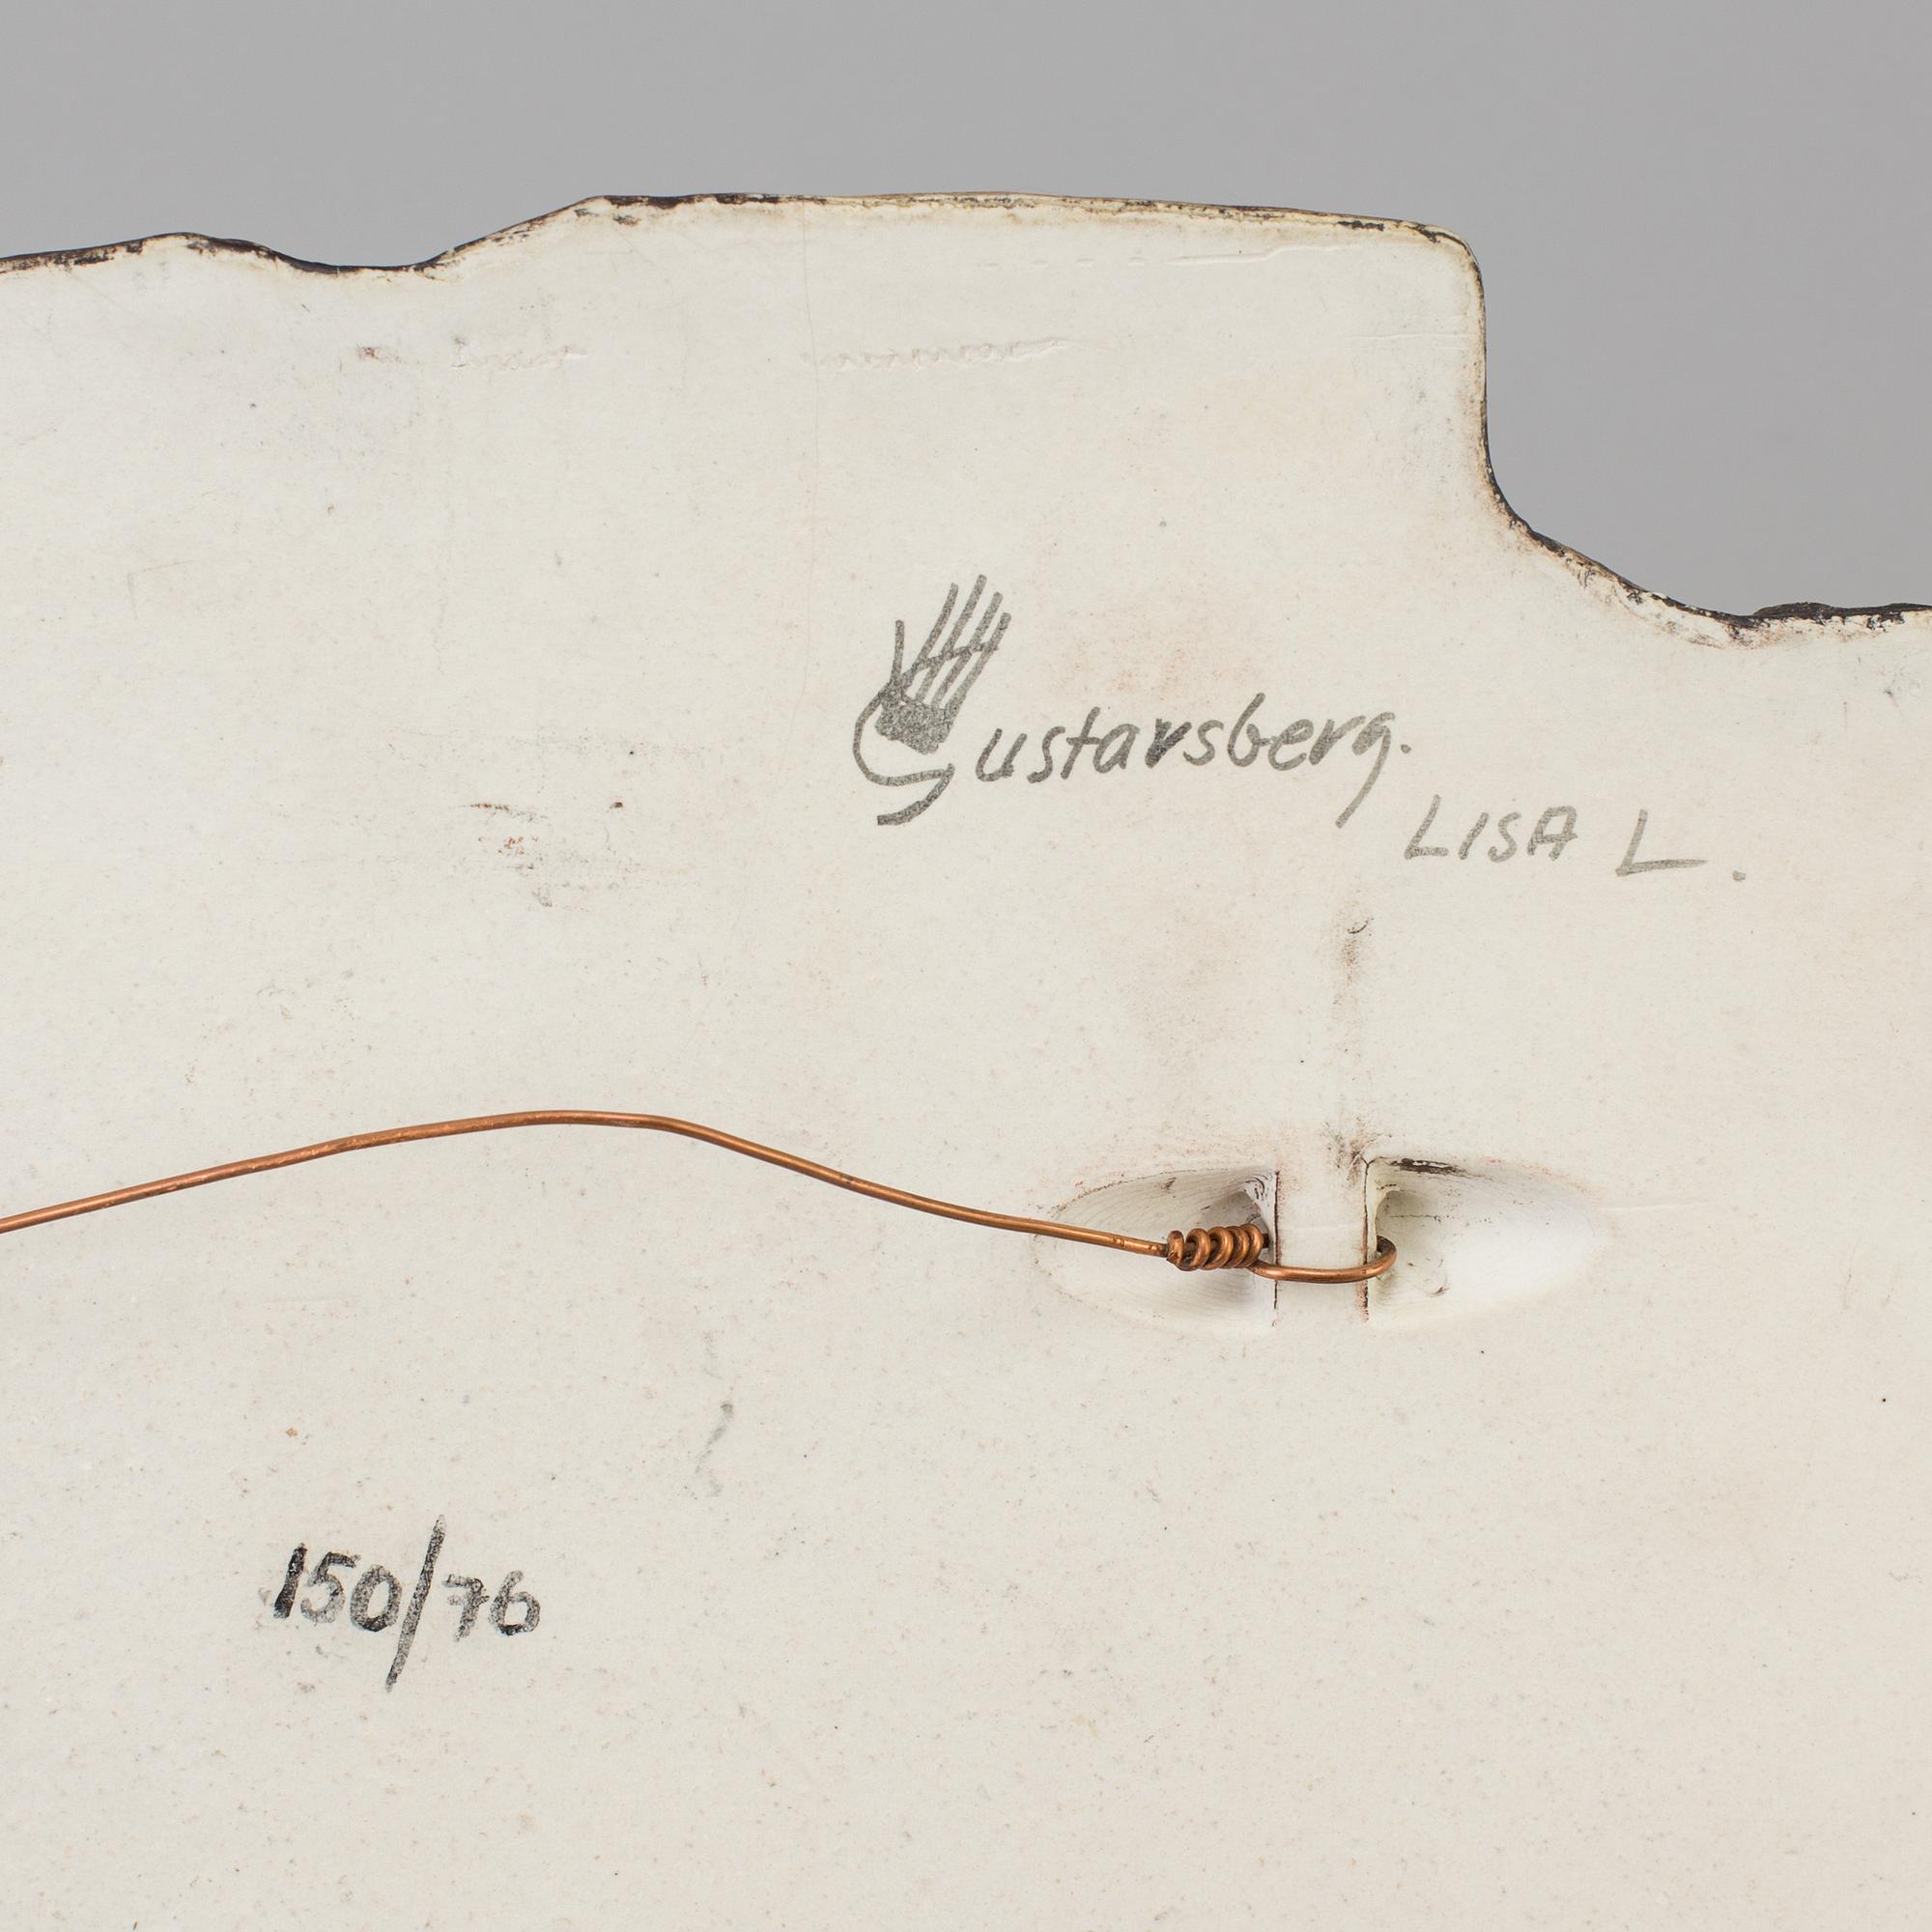 Gustavsberg.
LISA L.
150/76